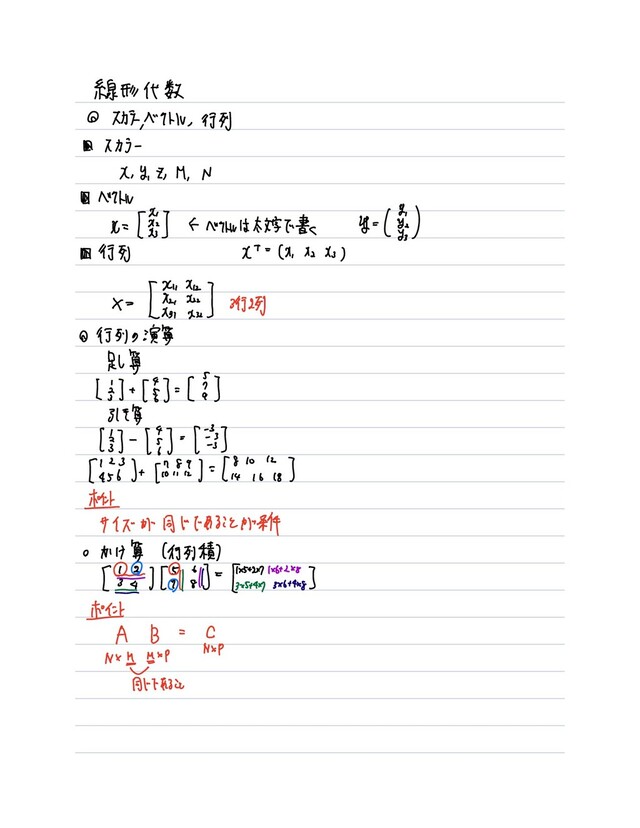 線形代数
◎ スカラー, ベクトル, 行列
スカラー
x, y, z, M, N
ベクトル
x = [x₁ x₂ x₃] ← ベクトルは太字で書く y = (y₁ y₂ y₃)
行列 xᵀ = (x₁ x₂ x₃)
X = [x₁₁ x₁₂ x₂₁ x₂₂ x₃₁ x₃₂] 3行2列
◎ 行列の演算
足し算
[1 2 3] + [4 5 6] = [5 7 9]
引き算
[1 2 3] - [4 5 6] = [-3 -3 -3]
[1 2 3 4 5 6] + [7 8 9 10 11 12] = [8 10 12 14 16 18]
ポイント
サイズが同じであることが条件
○ かけ算 (行列積)
[1 2 3 4] [5 6 7 8] = [1×5+2×7 1×6+2×8 3×5+4×7 3×6+4×8]
ポイント
A B = C
N×M M×P N×P
同じであること